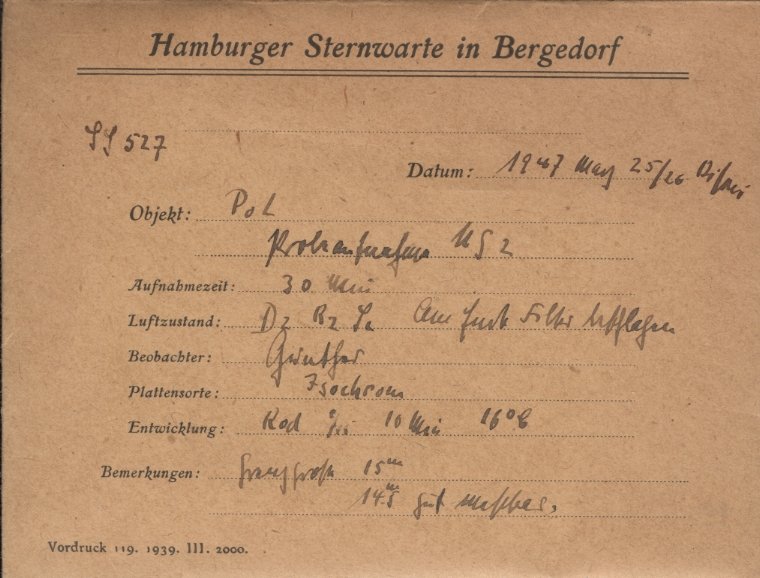 Hamburger Sternwarte in Bergedorf
527
Datum: 1947 May 25/26
Objekt: Pol
Probeaufnahme US 2
Aufnahmezeit: 30 Min
Luftzustand: D2 R2 Filter
Beobachter: Günther
Plattensorte: Isochrom
Entwicklung: Rod 10 Min 16°C
Bemerkungen: Grenzgröße 15ᵐ
14ᵐ5 gut messbar.
Vordruck 119. 1939. III. 2000.